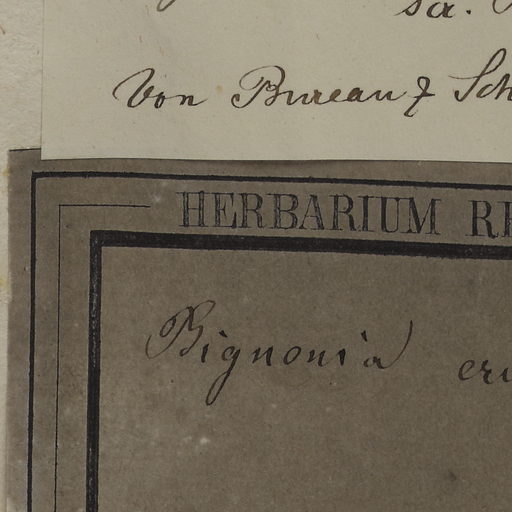 sa.
Von Bureau & Sch
HERBARIUM RE
Bignonia